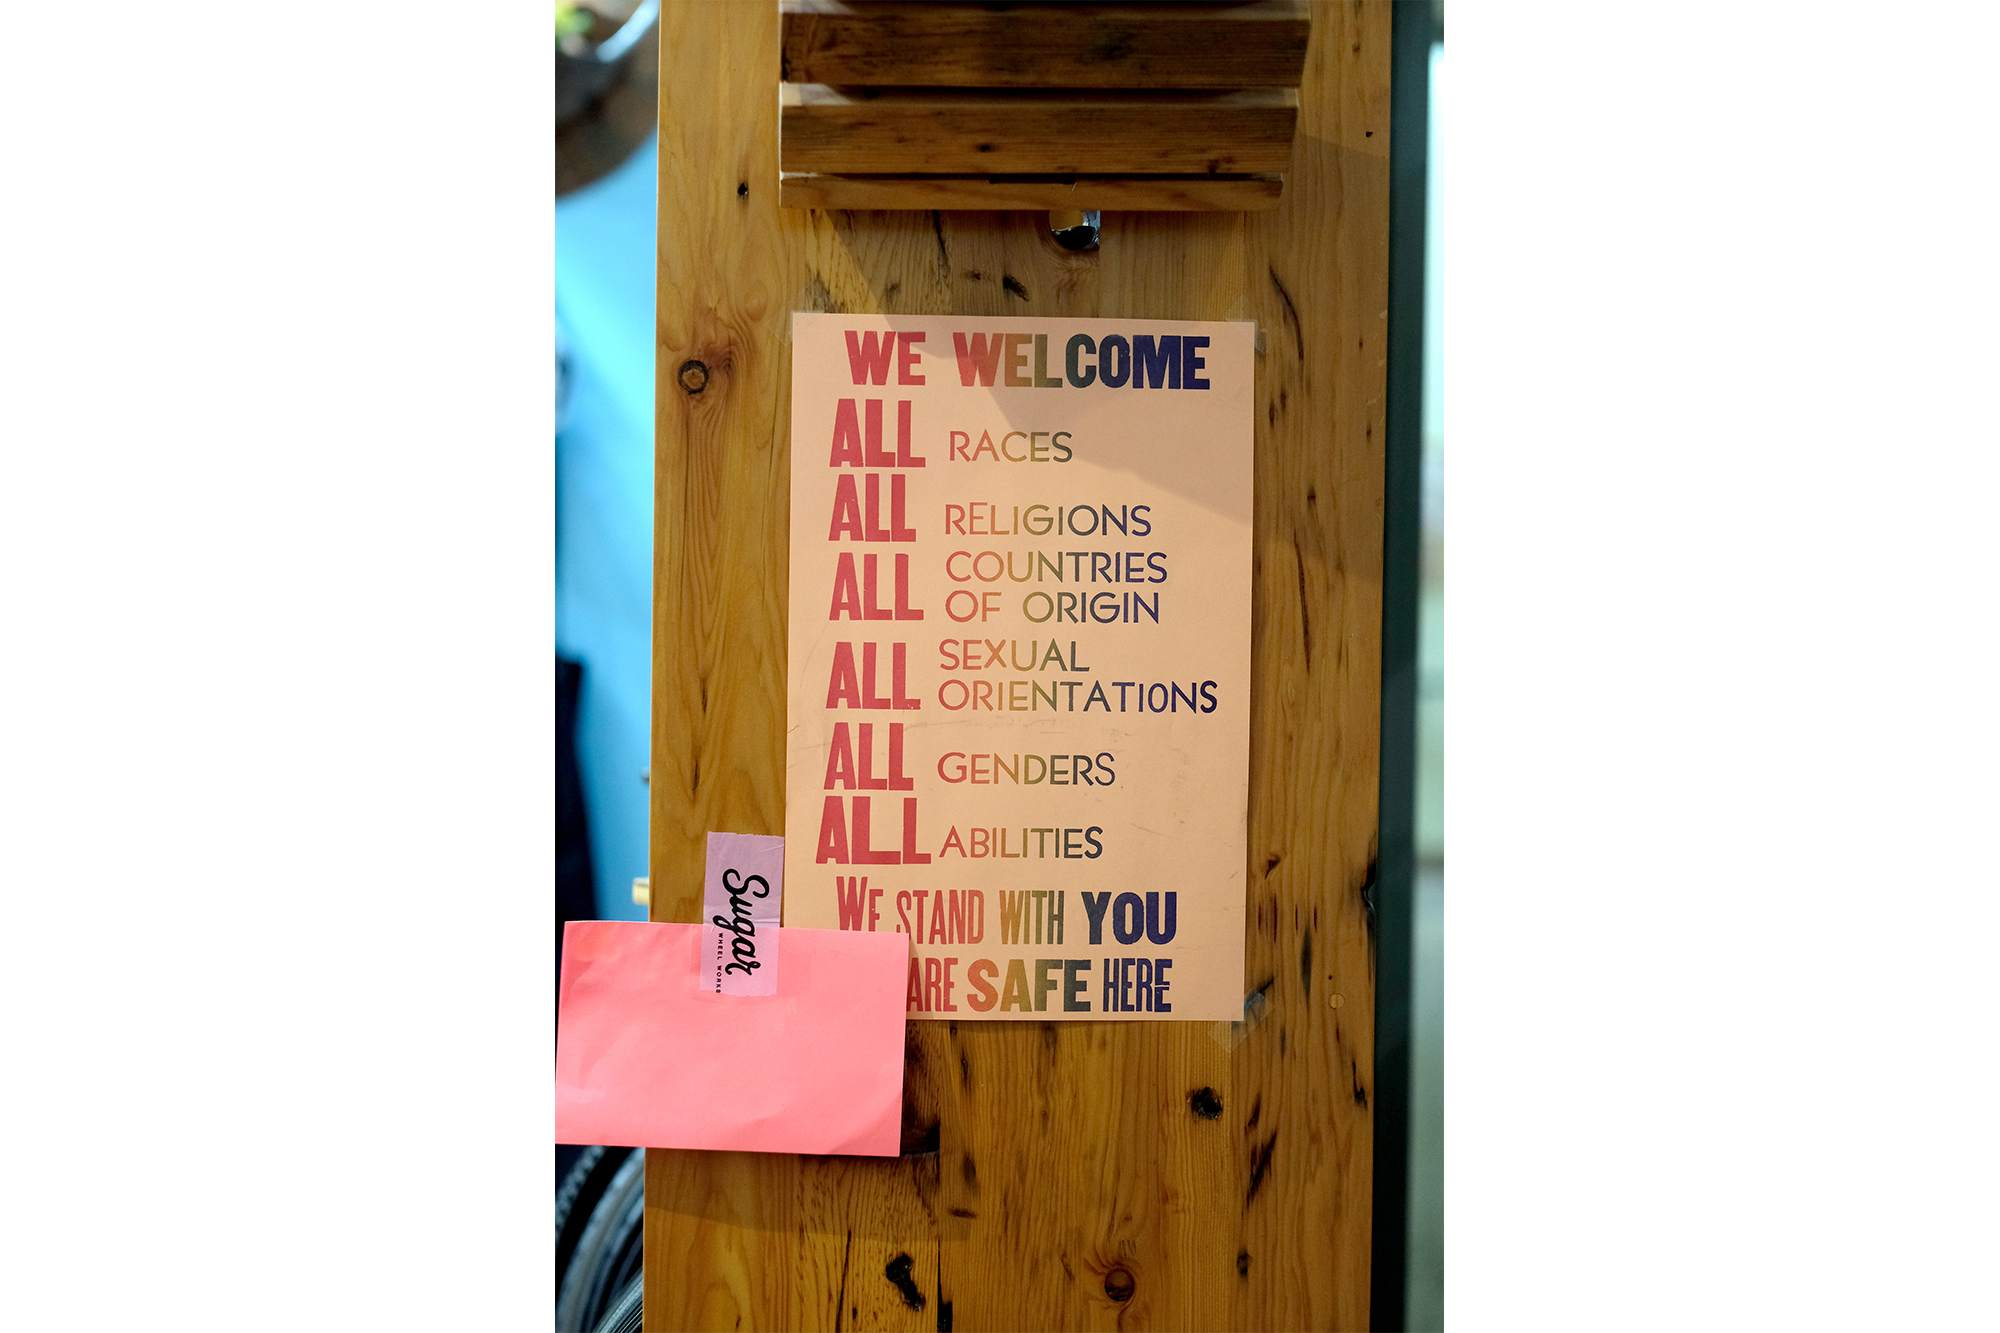 WE WELCOME
ALL RACES
ALL RELIGIONS
ALL COUNTRIES
OF ORIGIN
ALL SEXUAL
ORIENTATIONS
ALL GENDERS
ALL ABILITIES
WE STAND WITH YOU
ARE SAFE HERE
Sugar
WHEEL WORKS